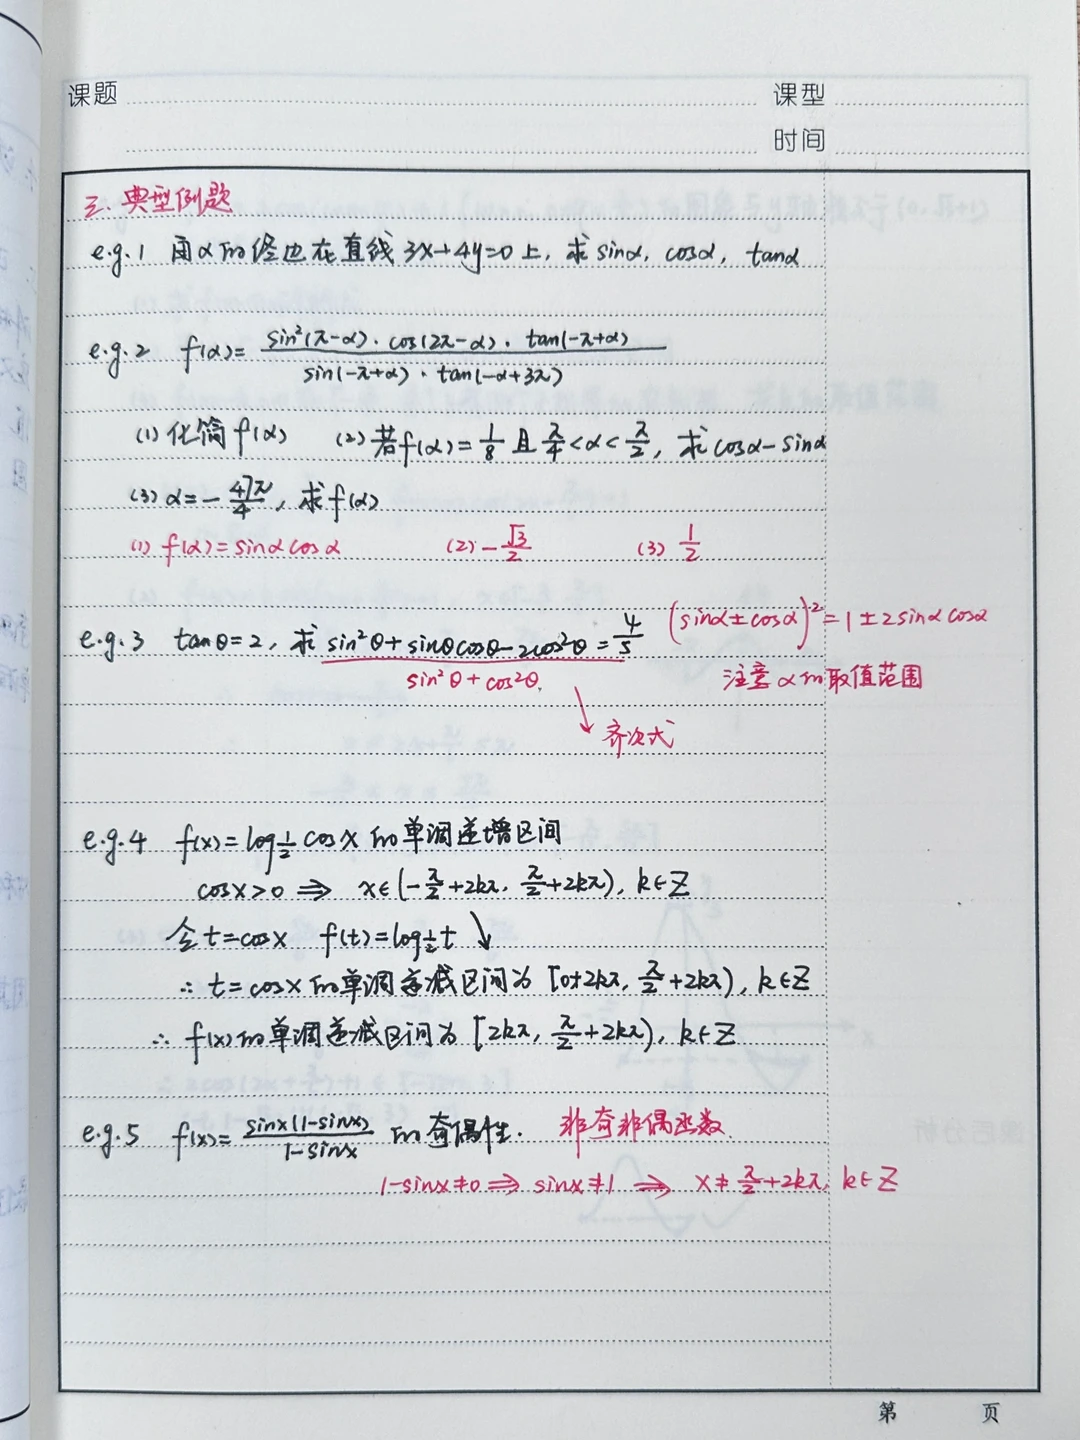 课题 课型
时间
三.典型例题
e.g.1 角α的终边在直线3x+4y=0上，求sinα，cosα，tanα
e.g.2 f(α)= sin²(π-α)·cos(2π-α)·tan(-π+α) / sin(-π+α)·tan(-α+3π)
(1)化简f(α) (2)若f(α)=1/8且π/4<α<π/2，求cosα-sinα
(3)α=-47π/4，求f(α)
(1) f(α)=sinαcosα (2) -√3/2 (3) 1/2
e.g.3 tanθ=2，求sin²θ+sinθcosθ-2cos²θ=4/5 (sinα±cosα)²=1±2sinαcosα
sin²θ+cos²θ 注意α的取值范围
↘ 齐次式
e.g.4 f(x)=log½cosx的单调递增区间
cosx>0 ⇒ x∈(-π/2+2kπ, π/2+2kπ), k∈Z
令t=cosx f(t)=log½t ↘
∴ t=cosx的单调递减区间为[0+2kπ, π/2+2kπ), k∈Z
∴ f(x)的单调递减区间为[2kπ, π/2+2kπ), k∈Z
e.g.5 f(x)= sinx(1-sinx) / 1-sinx 的奇偶性. 非奇非偶函数
1-sinx≠0 ⇒ sinx≠1 ⇒ x≠π/2+2kπ, k∈Z
第 页